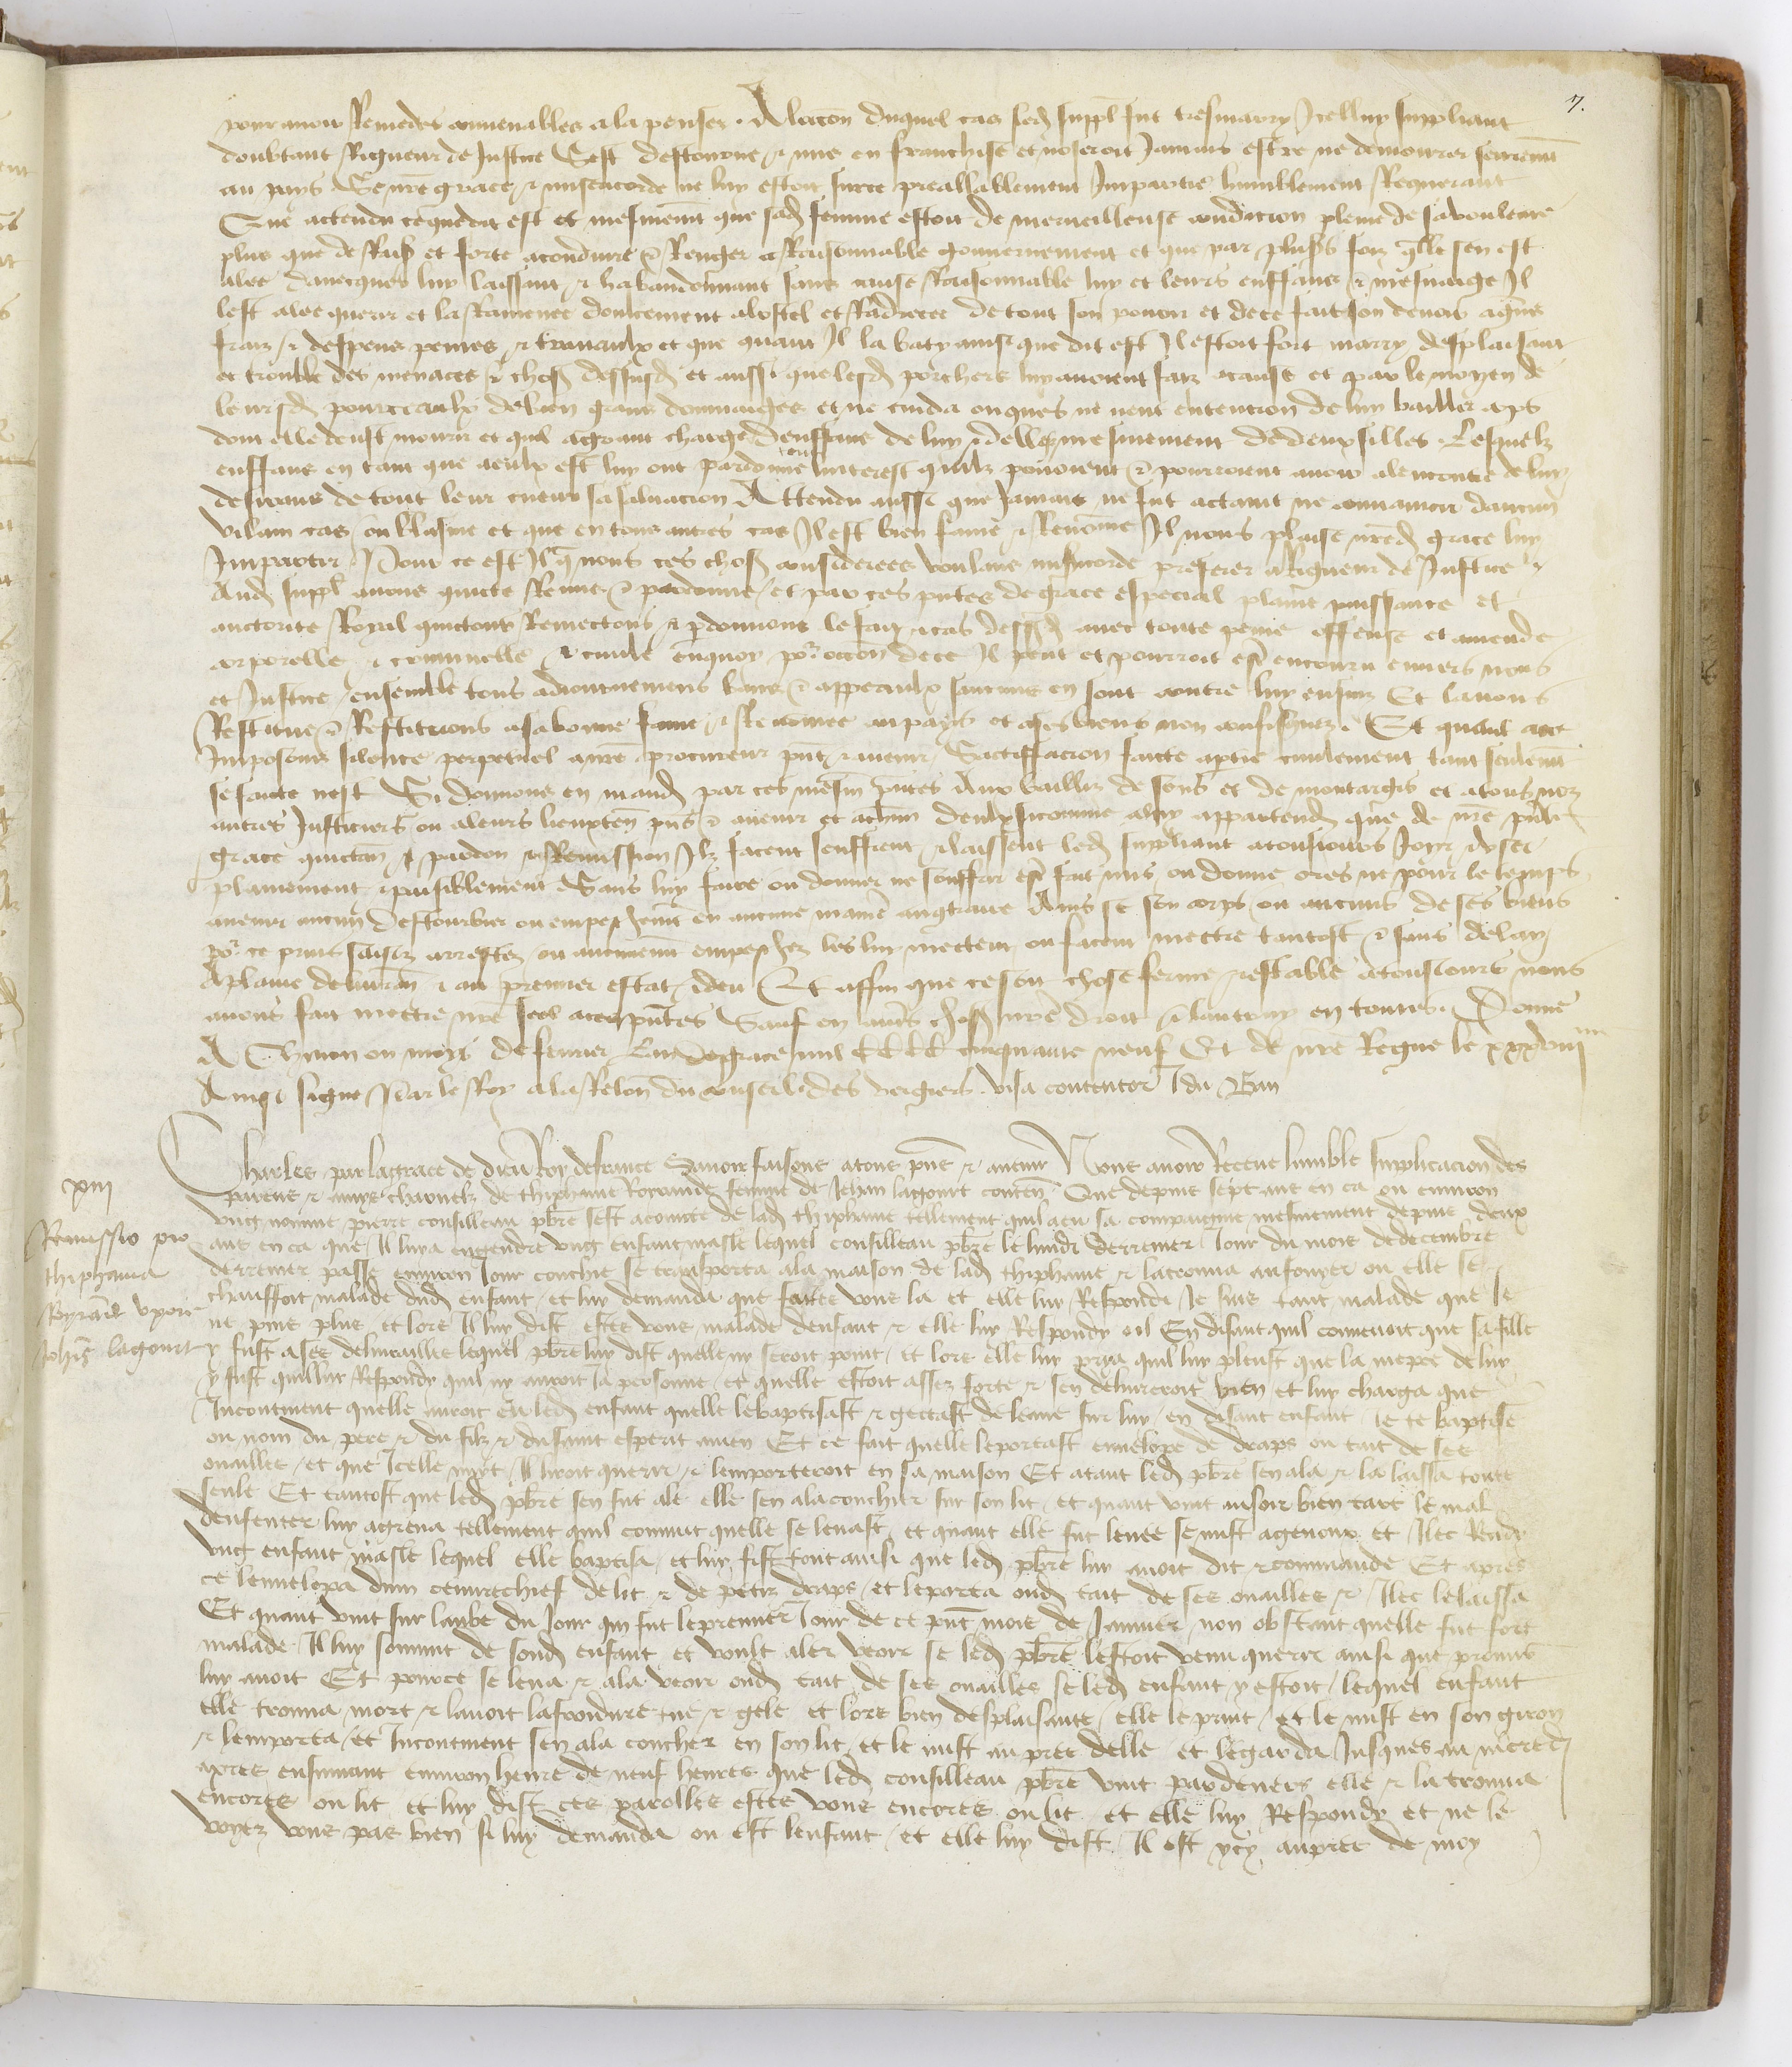 7.
pour avoir Remedes convenables a la penser. A loccon duquel cas led suppl fut tresmarry Icelluy suppliant
doubtant Rigueur de Justice Sest destourne et mis en franchise et noseroit Jamais estre ne demourer seurement
au pays Se nre grace et misericorde ne luy estoit surce preallablement Impartie humblement Requerant
Que actendu ce que dit est et mesmement que sad femme estoit de merveilleuse condicion plaine de sa voulente
plus que de Raison et forte a conduire et Renger a Raisonnable gouvernement et que par pluss foiz elle sen est
alee davecques luy laissant et habandonnant sans cause Raisonnable luy et leurs enffans et mesnaige Il
lest alee querir et la Ramenee doulcement a lostel et Radrecee de tout son povoir et de ce fait son devoir a grans
fraiz et despens peines et travaulx et que quant Il la baty ainsi que dit est Il estoit fort marry desplaisant
et trouble des menaces et choses dessusd et aussi que lesd porchers luy avoient faiz a cause et par le moyen de
leursd pourceaulx de bien grans dommaiges et ne cuida onques ne neut entention de luy bailler cops
dont elle deust mourir et quil a grant charge denffans de luy et delle mesmement de deux filles. Lesquelz
enffans en tant que a eulx est luy ont pardonne linterest quilz povoient et pourroient avoir alencontre de luy
desirans de tout leur cueur sa salvacion Attendu aussi que Jamais ne fut actaint ne convaincu daucun
vilain cas ou blasme et que en tous autres cas Il est bien fame et Renomme Il nous plaise nred grace luy
Impartir Pour ce est Il que nous ces choses considerees voulans misericorde preferer a Rigueur de Justice
Aud suppl avons quicte Remis et pardonne et par ces pntes de grace especial plaine puissance et
auctorite Royal quictons Remectons et pardonnons le fait et cas dessusd avec toute peine offense et amende
corporelle et criminelle et civile en quoy por occon de ce Il peut et pourroit estre encouru envers nous
et Justice ensemble tous adiournemens bans et appeaulx saucuns en sont contre luy ensuiz Et lavons
Restitue et Restituons a sa bonne fame et Renommee au pays et a ses biens non confisquez. Et quant a ce
Imposons silence perpetuel a nre procureur pnt et avenir Satisffacion faicte a partie civilement tant seulement
se faicte nest Si donnons en mand par ces mesmes pntes Aux bailliz de Sens et de montargis et a tous noz
autres Justiciers ou a leurs lieuxten pns et avenir et a chun deulx si comme a luy appartendra que de nre pnte
grace quictance pardon et Remission Ilz facent seuffrent et laissent led suppliant a tousiours Joyr et user
plainement et paisiblement Sans luy faire ou donner ne souffrir estre fait mis ou donne ores ne pour le temps
avenir aucun destourbier ou empeschement en aucune maniere au contraire Ains se son corps ou aucuns de ses biens
por ce sont saisiz arrestez ou aucunement empeschez les luy mectent ou facent mettre tantost et sans delay
A plaine delivrance et au premier estat et deu Et affin que ce soit chose ferme et estable a tousiours nous
avons fait mettre nre scel a ces pntes Sauf en autres choses nre droit et lautruy en toutes. Donne
A Chinon ou moys de fevrier Lan de grace mil CCCC cinquante neuf Et de nre Regne le xxxviii me
Ainsi signe Par le Roy a la Relon du conseil des vergiers. visa contentor J du Ban
xiii
Remissio pro
thiphania
Royrande uxore
Johis lagourt
Charles par la grace de dieu Roy de france Savoir faisons a tous pns et avenir Nous avoir Receue lumble supplicacion des
parens et amys charnelz de thiphaine Rorande femme de Jehan lagourt conten Que depuis sept ans en ca ou environ
ung nomme pierre consilleau pbre sest acointe de lad thiphaine tellement quil a eu sa compaignie mesmement depuis deux
ans en ca que Il lui a engendre ung enfant masle lequel consilleau pbre le lundi derrenier Jour du mois de decembre
derrenier passe environ Jour couchie se transporta a la maison de lad thiphaine et la trouva au fouyer ou elle se
chauffoit malade dud enfant et luy demanda que faites vous la et elle luy Respondi Je suis tant malade que Je
ne puis plus et lors Il luy dist estes vous malade denfant et elle luy Respondy oil En disant quil convenoit que sa fille
y fust a ses delivrailles lequel pbre luy dist quelle ny seroit point et lors elle luy pria quil luy pleust que la niepce de luy
y fust qui luy Respondy quil ny auroit Ja personne et quelle estoit assez forte et sen delivreroit bien et luy charga que
Incontinent quelle auroit eu led enfant quelle le baptisast et gectast de leaue sur luy en disant enfant Je te baptise
ou nom du pere et du filz et du saint esperit amen Et ce fait quelle le portast envelope de draps ou tait de ses
ouailles et que Icelle nuyt Il liroit querir et lemporteroit en sa maison Et atant led pbre sen ala et la laissa toute
seule Et tantost que led pbre sen fut ale elle sen ala couchier sur son lit et quant vint au soir bien tart le mal
denfenter luy agreva tellement quil convint quelle se levast et quant elle fut levee se mist a genoux et Ilec Rendi
ung enfant masle lequel elle baptisa et luy fist tout ainsi que led pbre luy avoit dit et commande Et apres
ce lenvelopa dun cevrechief de lit et de petiz draps et le porta oud tait de ses ouailles et Ilec le laissa
Et quant vint sur laube du Jour qui fut le premier Jour de ce pnt mois de Janvier non obstant quelle fut fort
malade Il luy souvint de sond enfant et voult aler veoir se led pbre lestoit venu querir ainsi que promis
luy avoit Et pource se leva et ala veoir oud tait de ses ouailles se led enfant y estoit lequel enfant
elle trouva mort et lavoit la froidure tue et gele et lors bien desplaisante elle le print et le mist en son giron
et lemporta et Incontinent sen ala coucher en son lit et le mist au pres delle et le garda Jusques au mercredi
apres ensuivant environ heure de neuf heures que led consilleau pbre vint par devers elle et la trouva
encores ou lit et luy dist ces parolles estes vous encores ou lit et elle luy Respondy et ne le
voyez vous pas bien si luy demanda ou est lenfant et elle luy dist Il est ycy aupres de moy